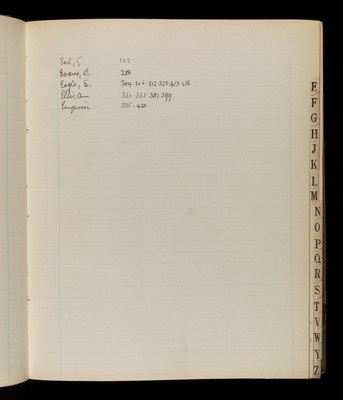 Earl, E. 103
Evans, C. 286
Eagle, S. 304 · 306 · 312 · 323 · 413 · 426
Ellis, Ann 361 · 361 · 387 · 399
335 · 420
E
F
G
H
J
K
L
M
N
O
P
Q
R
S
T
V
W
Y
Z